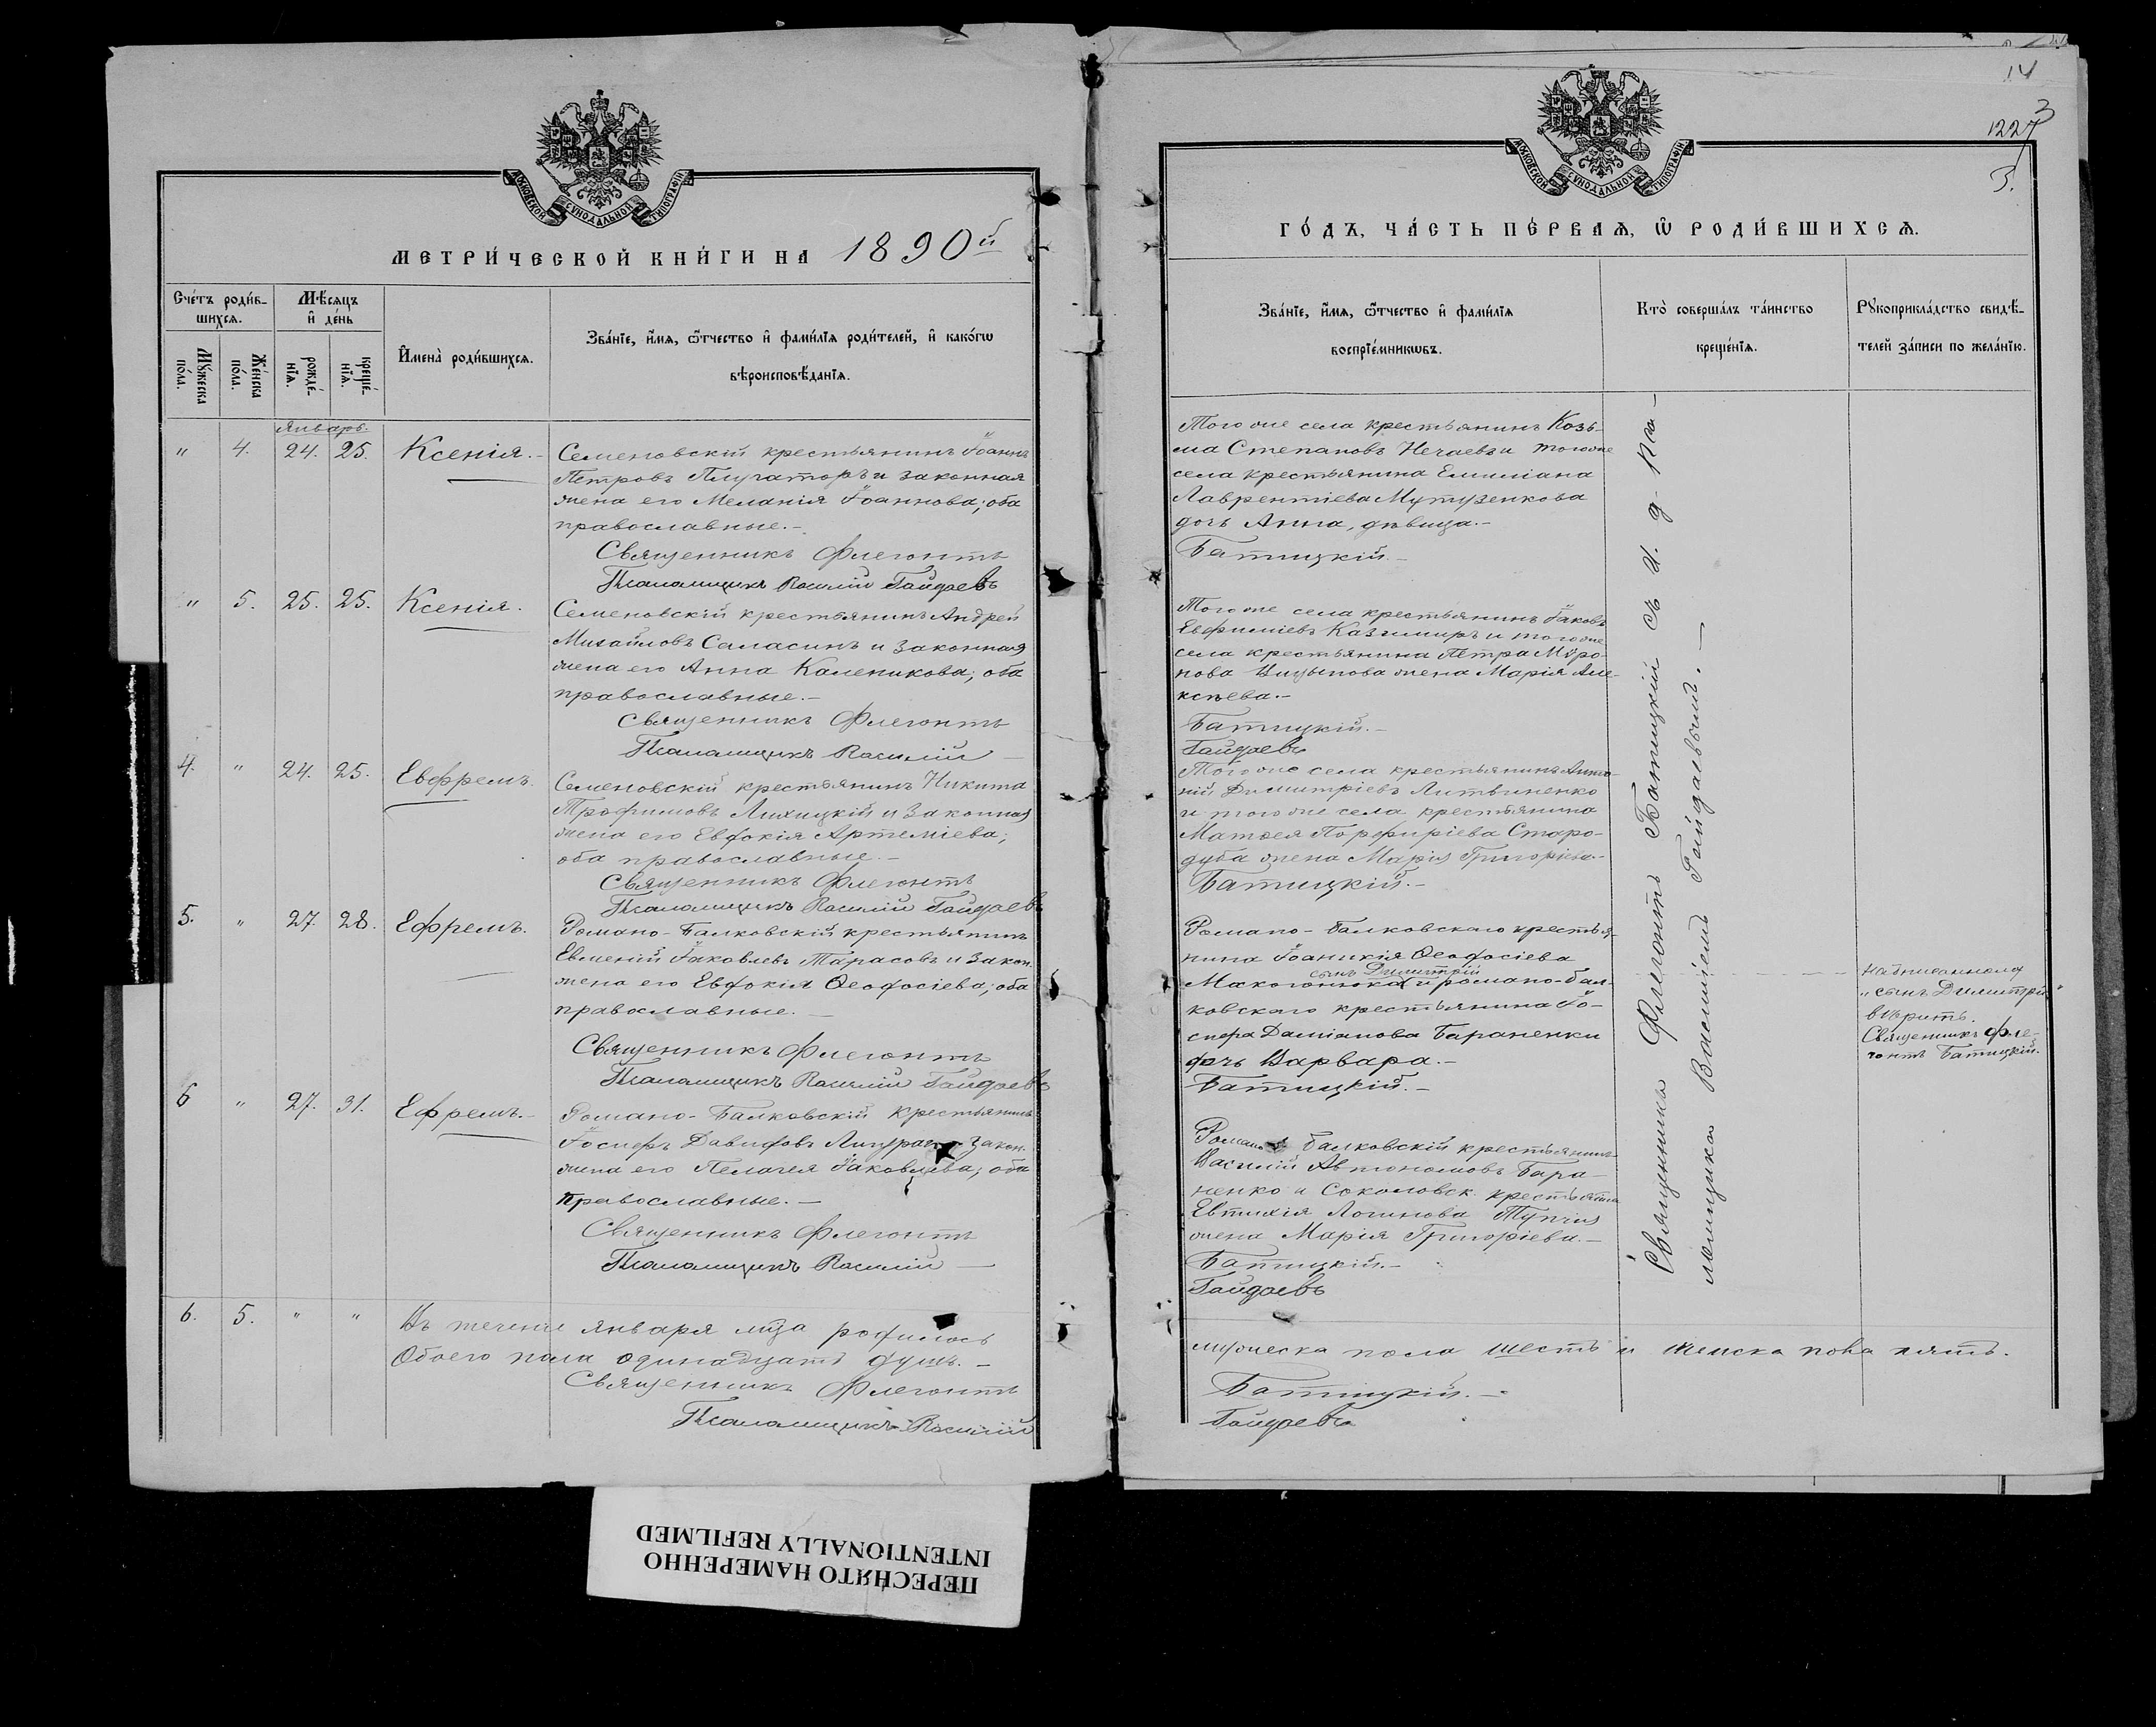 МОСКОВСКОЙ СУНОДАЛЬНОЙ ТИПОГРАФІИ
МЕТРИ́ЧЕСКОЙ КНИ́ГИ НА 1890й
Сче́тъ роди́в-
шихсѧ.
Мѣ́сѧцъ
и҆ де́нь
Мꙋ́жеска
по́ла.
Же́нска
по́ла.
рожде́-
нїѧ.
креще́-
нїѧ.
И҆мена̀ роди́вшихсѧ.
Зва́нїе, и҆́мѧ, ѻ҆́тчество и҆ фами́лїѧ роди́телей, и҆ како́гѡ
вѣроисповѣ́данїѧ.
Январь.
" 4. 24. 25. Ксенія.
Семеновскій крестьянинъ Іоаннъ
Петровъ Плугаторъ и законная
жена его Меланія Іоаннова; оба
православные.
Священникъ Флегонтъ
Псаломщикъ Василій Гайдаевъ
" 5. 25. 25. Ксенія.
Семеновскій крестьянинъ Андрей
Михайловъ Саласинъ и законная
жена его Анна Каленикова; оба
православные.
Священникъ Флегонтъ
Псаломщикъ Василій
4. " 24. 25. Евфремъ.
Семеновскій крестьянинъ Никита
Трофимовъ Лихицкій и законная
жена его Евдокія Артеміева;
оба православные.
Священникъ Флегонтъ
Псаломщикъ Василій Гайдаевъ
5. " 27. 28. Ефремъ.
Романо-Балковскій крестьянинъ
Евменій Іаковлевъ Тарасовъ и закон.
жена его Евдокія Ѳеодосіева; оба
православные.
Священникъ Флегонтъ
Псаломщикъ Василій Гайдаевъ
6 " 27. 31. Ефремъ.
Романо-Балковскій крестьянинъ
Іосифъ Давидовъ закон.
жена его Пелагея Іаковлева; оба
православные.
Священникъ Флегонтъ
Псаломщикъ Василій
6. 5. " " Въ теченіе января мца родилось
Обоего пола одинадцать душъ.
Священникъ Флегонтъ
Псаломщикъ Василій
14
3
1227
3.
МОСКОВСКОЙ СУНОДАЛЬНОЙ ТИПОГРАФІИ
ГО́ДЪ, ЧА́СТЬ ПЕ́РВАѦ, Ѡ҆ РОДИ́ВШИХСѦ.
Зва́нїе, и҆́мѧ, ѻ҆́тчество и҆ фами́лїѧ
воспрїе́мникѡвъ.
Кто̀ соверша́лъ та́инство
креще́нїѧ.
Рꙋкоприкла́дство свидѣ́-
телей за́писи по жела́нїю.
Того же села крестьянинъ Козь-
ма Степановъ Нечаевъ и того же
села крестьянина Емиліана
Лаврентіева Мутузенкова
дочь Анна, дѣвица.
Батицкій.
Того же села крестьянинъ Іаковъ
Евфиміевъ Казимиръ и того же
села крестьянина Петра Миро-
нова жена Марія Але-
ксѣева.
Батицкій.
Гайдаевъ
Того же села крестьянинъ Анто-
ній Димитріевъ Литвиненко
и того же села крестьянина
Матѳея Порфиріева Старо-
дуба жена Марія Григоріева.
Батицкій.
Романо-Балковскаго крестья-
нина Іоанникія Ѳеодосіева
сынъ Димитрій
Макогонюка и романо-бал-
ковскаго крестьянина Іо-
сифа Даміанова Бараненки
дочь Варвара.
Батицкій.
Романо-Балковскій крестьянинъ
Василій Автономовъ Бара-
ненко и Соколовск. крестьянина
Евтихія Логинова
жена Марія Григоріева.
Батицкій.
Гайдаевъ
мужеска пола шесть и женска пола пять.
Батицкій.
Гайдаевъ
Священникъ Флегонтъ Батицкій съ и. д. пса-
ломщика Василіемъ Гайдаевымъ.
Надписанному
"сынъ Димитрій"
вѣрить.
Священникъ Фле-
гонтъ Батицкій.
ПЕРЕСНЯТО НАМЕРЕННО
INTENTIONALLY REFILMED